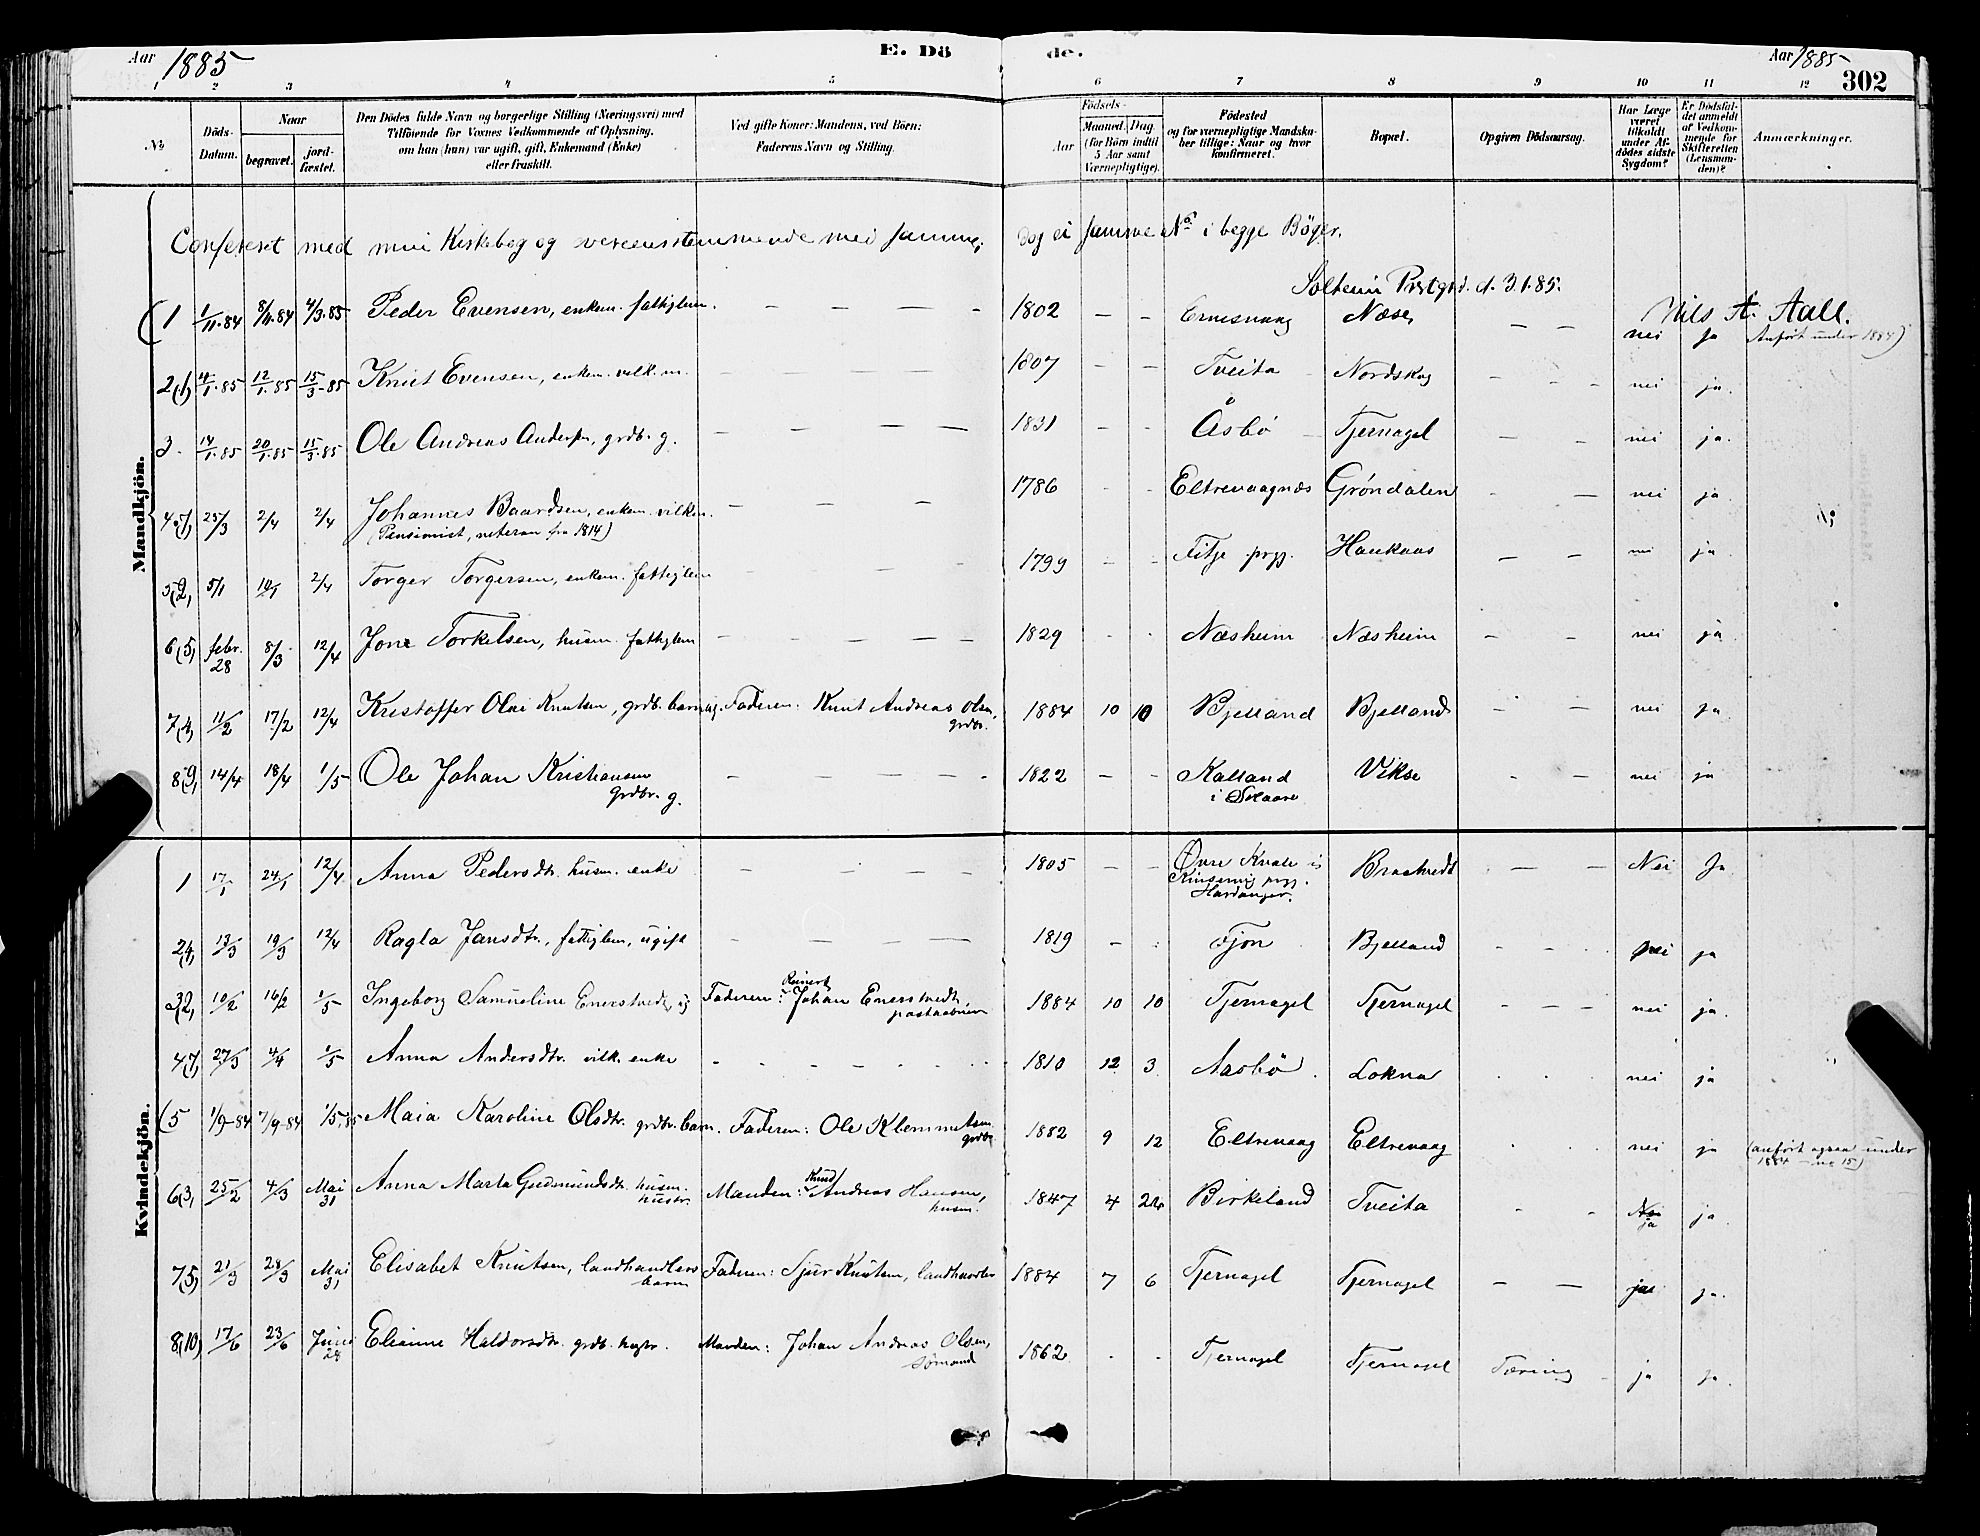 Aar 1885 E. Dö de. Aar 1885 302
1 2 3 4 5 6 7 8 9 10 11 12
№ Döds-Datum. Naar begravet. jord-fæstet. Den Dödes fulde Navn og borgerlige Stilling (Næringsvei) med Tilföiende for Voxnes Vedkommende af Oplysning, om han (hun) var ugift, gift, Enkemand (Enke) eller fraskilt. Ved gifte Koner: Mandens, ved Börn: Faderens Navn og Stilling. Födsels- Aar Maaned. Dag. (for Börn indtil 5 Aar samt Værnepligtige). Födested og for værnepligtige Mandskaber tillige: Naar og hvor konfirmeret. Bopæl. Opgiven Dödsaarsag. Har Læge været tilkaldt under Afdödes sidste Sygdom? Er Dödsfaldet anmeldt af Vedkommende for Skifteretten (Lensmanden)? Anmærkninger.
Mandkjön.
Confereret med min Kirkebog og overensstemmende med samme, dog ei samme No i begge Böger.
Solheim Prstgrd. d. 3.1.85.
Nils A. Aall.
(1 1/11.84 8/11.84 4/3.85 Peder Evensen, enkem. fattiglem. — — — — 1802 — — Ernesvaag Næse, — — nei Ja Anført under 1884)
2(1, 4/1.85 12/1.85 15/3-85 Knut Evensen, enkem. vilk.m. — — — — 1807 — — Tveita Nordskog — — nei ja.
3. 14/1.85 20/1.85 15/3.85 Ole Andreas Anders., grdb. g. — — — — 1831 - - Åsbö Tjernagel — — nei ja.
4(7, 25/3 2/4 2/4 Johannes Baardsen, enkem. vilkm. — — — 1786 - - Eltrevaagnæs Gröndalen - — nei ja
(Pensionist, veteran fra 1814)
5(2, 5/1 10/1 2/4 Torger Torgersen, enkem. fattiglem — — — 1799 - - Fitje prgj. Haukaas — — nei ja.
6(5, febr. 28 8/3 12/4 Jone Torkelsen, husm. fattiglem — — — — 1829 - - Næsheim Næsheim - - nei ja
7(4, 11/2 17/2 12/4 Kristoffer Olai Knutsen, grdb. barn ug. Faderen: Knut Andreas Olsen, grdbr. 1884 10 10 Bjelland Bjelland - - nei ja
8(9, 14/4 18/4 1/5 Ole Johan Kristiansen grdbr. g. — — — - 1822 — - Kalland i Velaare Vikse - - nei ja
Kvindekjön.
1 17/1 24/1 12/4 Anna Pedersdtr. husm. enke — — — — 1805 — — Övre Kvale i Kinservig prgj. Hardanger. Braatvedt — — Nei Ja
2(4, 13/3 19/3 12/4 Ragla Jansdtr., fattiglem, ugift — — — — 1819 — - Fjon Bjelland - - nei ja
3(2, 10/2 16/2 1/5 Ingeborg Samueline Enerstvedt, ug Faderen: Reinert Johan Enerstvedt, postaabner 1884 10 10 Tjernagel Tjernagel - - - nei ja.
4(7, 27/3 4/4 1/5 Anna Andersdtr. vilk. enke - - - - 1810 12 3 Aasbö Lokna . . nei ja
(5 1/9-84 7/9-84 1/5.85 Maia Karoline Olsdtr. grdbr. barn. Faderen: Ole Klemmetsen grdbr. 1882 9 12 Eltrevaag Eltrevaag . . nei ja (anført ogsaa under 1884 - no 15)
6(3, 25/2 4/3 Mai 31 Anna Marta Gudmundsdtr. husm. hustr. Manden: Knud Andreas Hansen, husm. 1847 4 24 Birkeland Tveita - - Nei ja ja.
7(5, 21/3 28/3 Mai 31 Elisabet Knutsen, landhandlers barn Faderen: Sjur Knutsen, landhandler 1884 7 6 Tjernagel Tjernagel — — ja ja.
8(10) 17/6 23/6 Juni 28 Elianne Haldorsdtr. grdb. hustr. Manden: Johan Andreas Olsen, Sømand 1862 . . Tjernagel Tjernagel Tæring - ja ja.